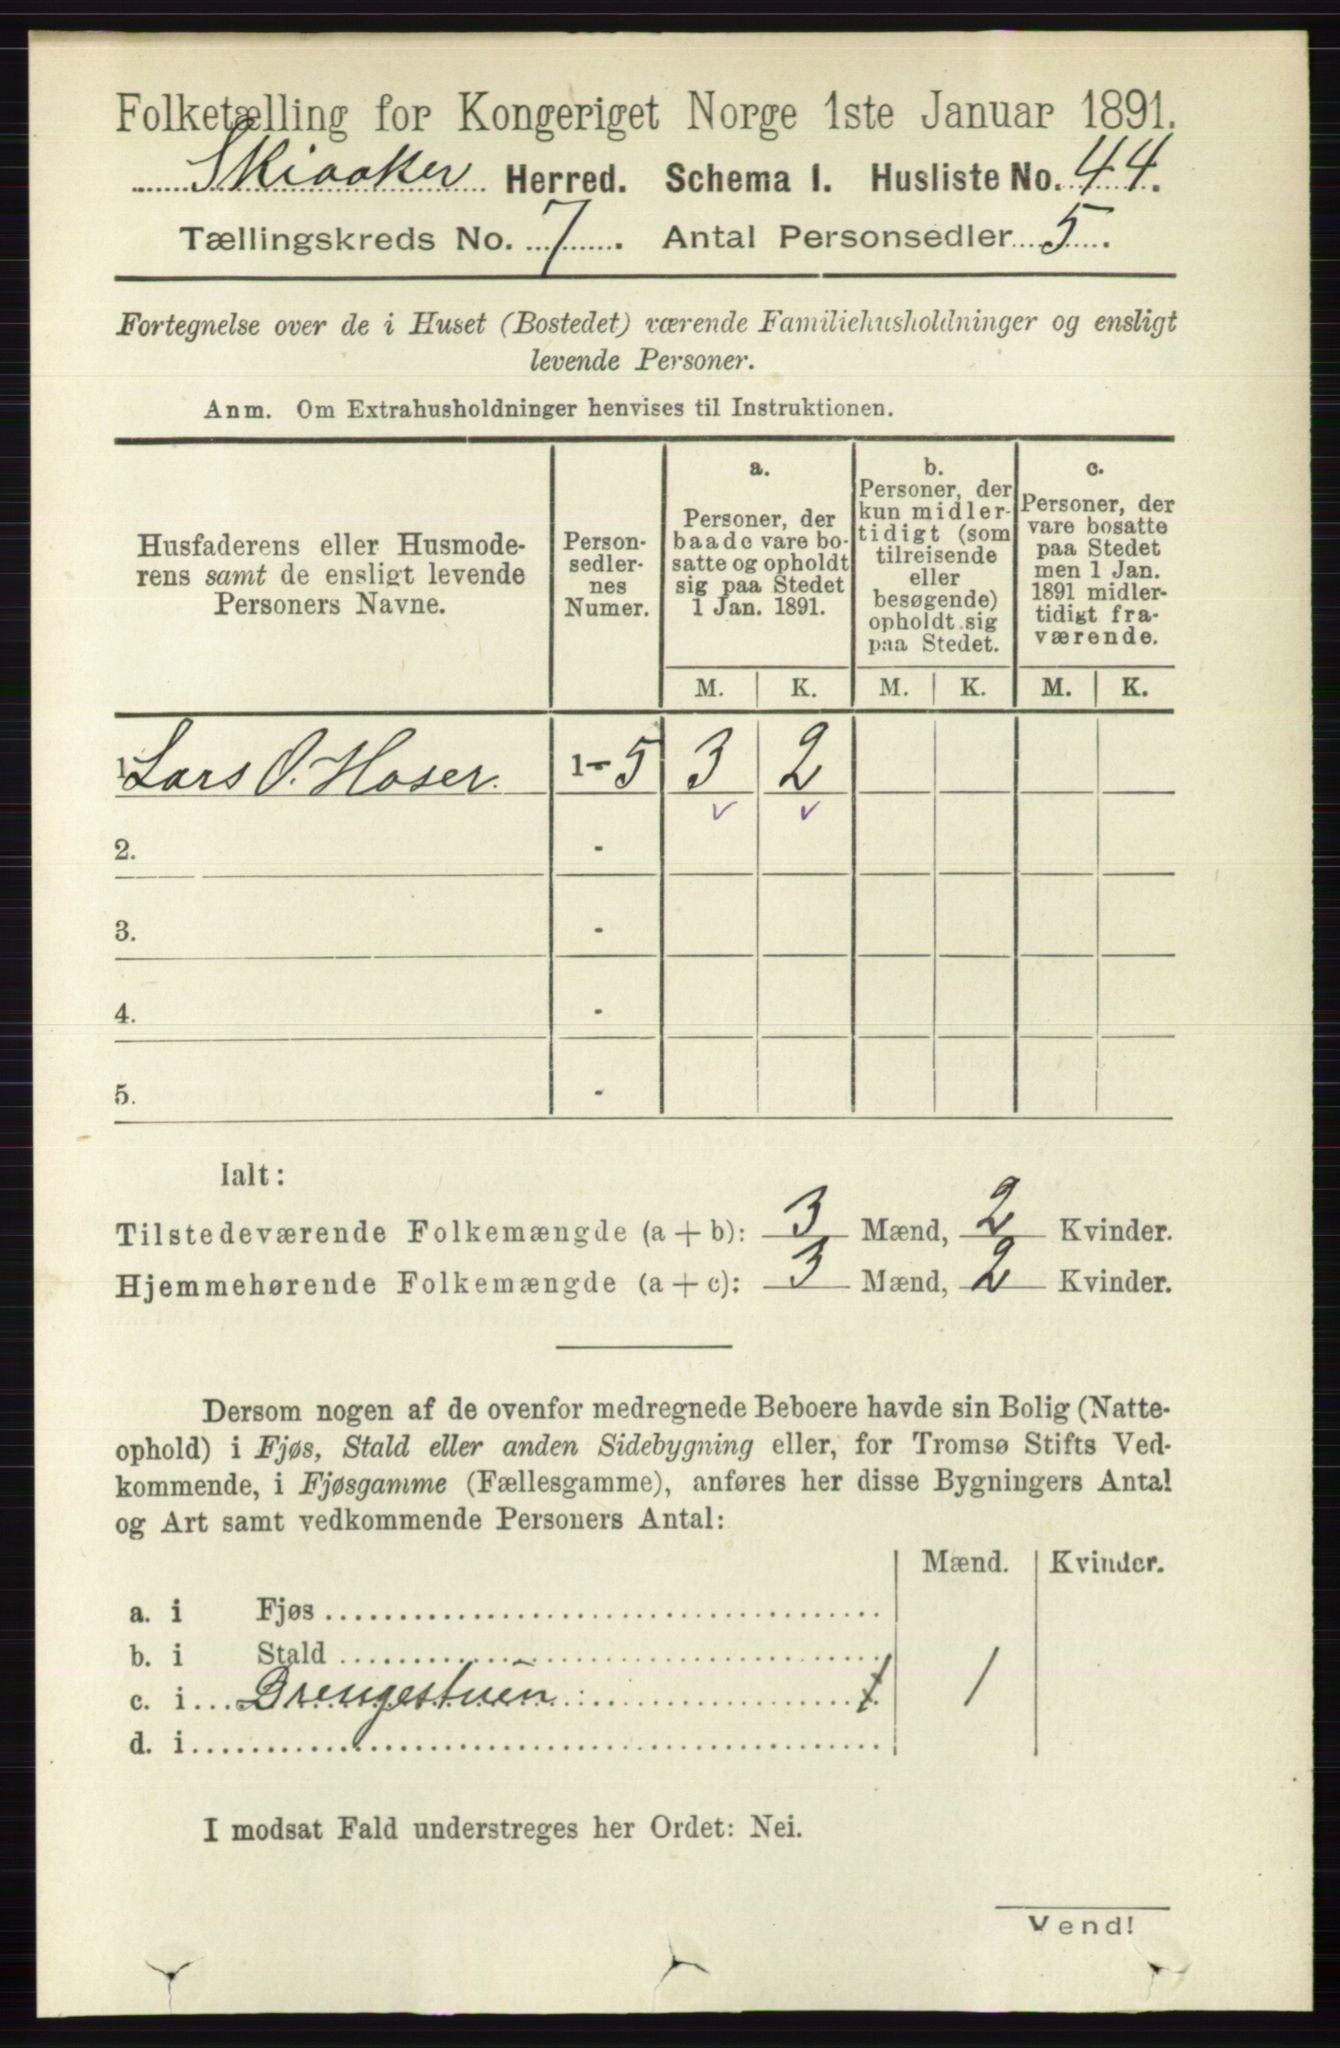 Folketælling for Kongeriget Norge 1ste Januar 1891.
Skiaaker Herred. Schema 1. Husliste No. 44.
Tællingskreds No. 7. Antal Personsedler 5.
Fortegnelse over de i Huset (Bostedet) værende Familiehusholdninger og ensligt
levende Personer.
Anm. Om Extrahusholdninger henvises til Instruktionen.
Husfaderens eller Husmode-
rens samt de ensligt levende
Personers Navne.
Person-
sedler-
nes
Numer.
a.
Personer, der
baade vare bo-
satte og opholdt
sig paa Stedet
1 Jan. 1891.
b.
Personer, der
kun midler-
tidigt (som
tilreisende
eller
besøgende)
opholdt sig
paa Stedet.
c.
Personer, der
vare bosatte
paa Stedet
men 1 Jan.
1891 midler-
tidigt fra-
værende.
M. K. M. K. M. K.
1. Lars O. Hoser. 1-5 3 2
2. -
3. -
4. -
5. -
Ialt:
Tilstedeværende Folkemængde (a + b): 3 Mænd, 2 Kvinder.
Hjemmehørende Folkemængde (a + c): 3 Mænd, 2 Kvinder.
Dersom nogen af de ovenfor medregnede Beboere havde sin Bolig (Natte-
ophold) i Fjøs, Stald eller anden Sidebygning eller, for Tromsø Stifts Ved-
kommende, i Fjøsgamme (Fællesgamme), anføres her disse Bygningers Antal
og Art samt vedkommende Personers Antal:
Mænd. Kvinder.
a. i Fjøs
b. i Stald
c. i Drengestuen 1 1
d. i
I modsat Fald understreges her Ordet: Nei.
Vend!